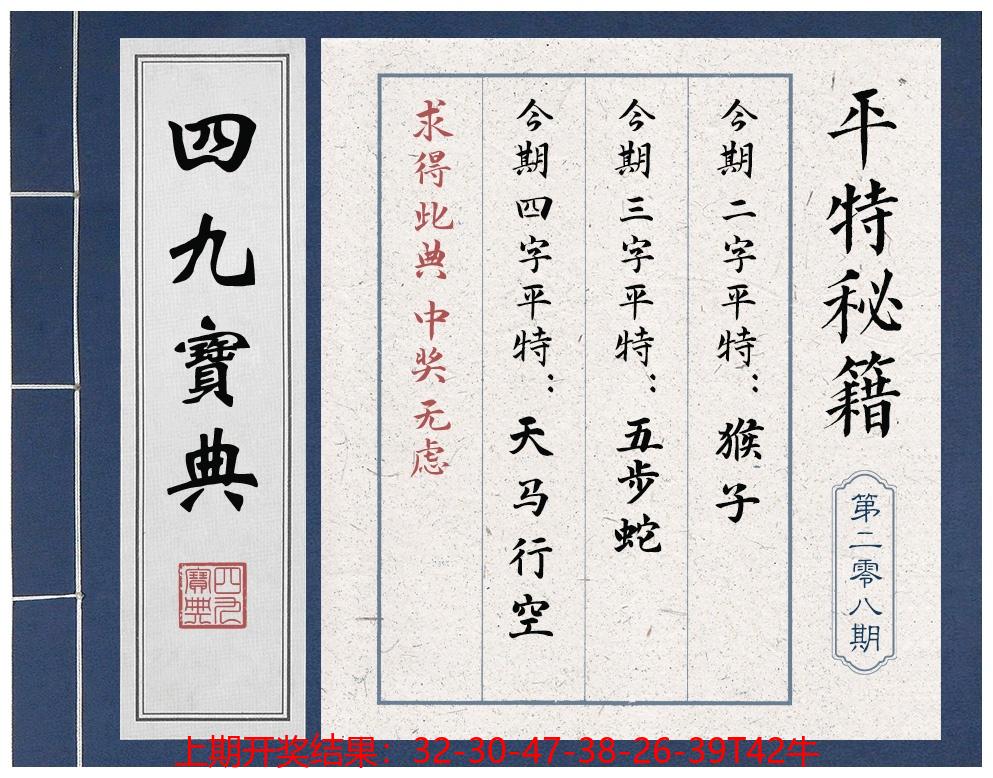 平特秘籍
第二零八期
今期二字平特：猴子
今期三字平特：五步蛇
今期四字平特：天马行空
求得此典 中奖无虑
四九寶典
四九寶典
上期开奖结果：32-30-47-38-26-39T42牛